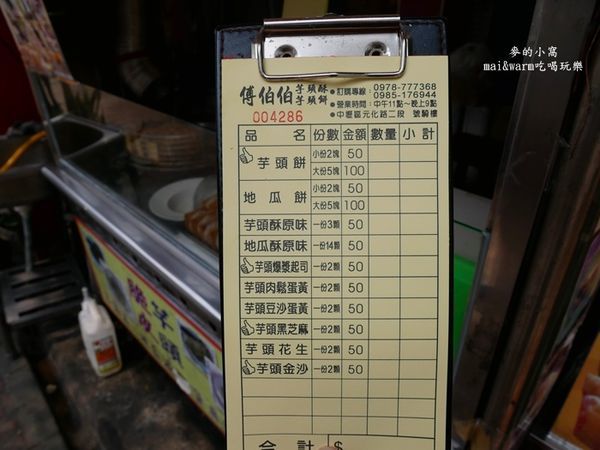 麥的小窩
mai&warm吃喝玩樂
傅伯伯 芋頭酥 芋頭餅
●訂購專線：0978-777368
0985-176944
●營業時間：中午11點～晚上9點
●中壢區元化路二段 號騎樓
004286
品名 份數 金額 數量 小計
芋頭餅 小份2塊 50
大份5塊 100
地瓜餅 小份2塊 50
大份5塊 100
芋頭酥原味 一份3顆 50
地瓜酥原味 一份14顆 50
芋頭爆漿起司 一份2顆 50
芋頭肉鬆蛋黃 一份2顆 50
芋頭豆沙蛋黃 一份2顆 50
芋頭黑芝麻 一份2顆 50
芋頭花生 一份2顆 50
芋頭金沙 一份2顆 50
合計 $
芋頭